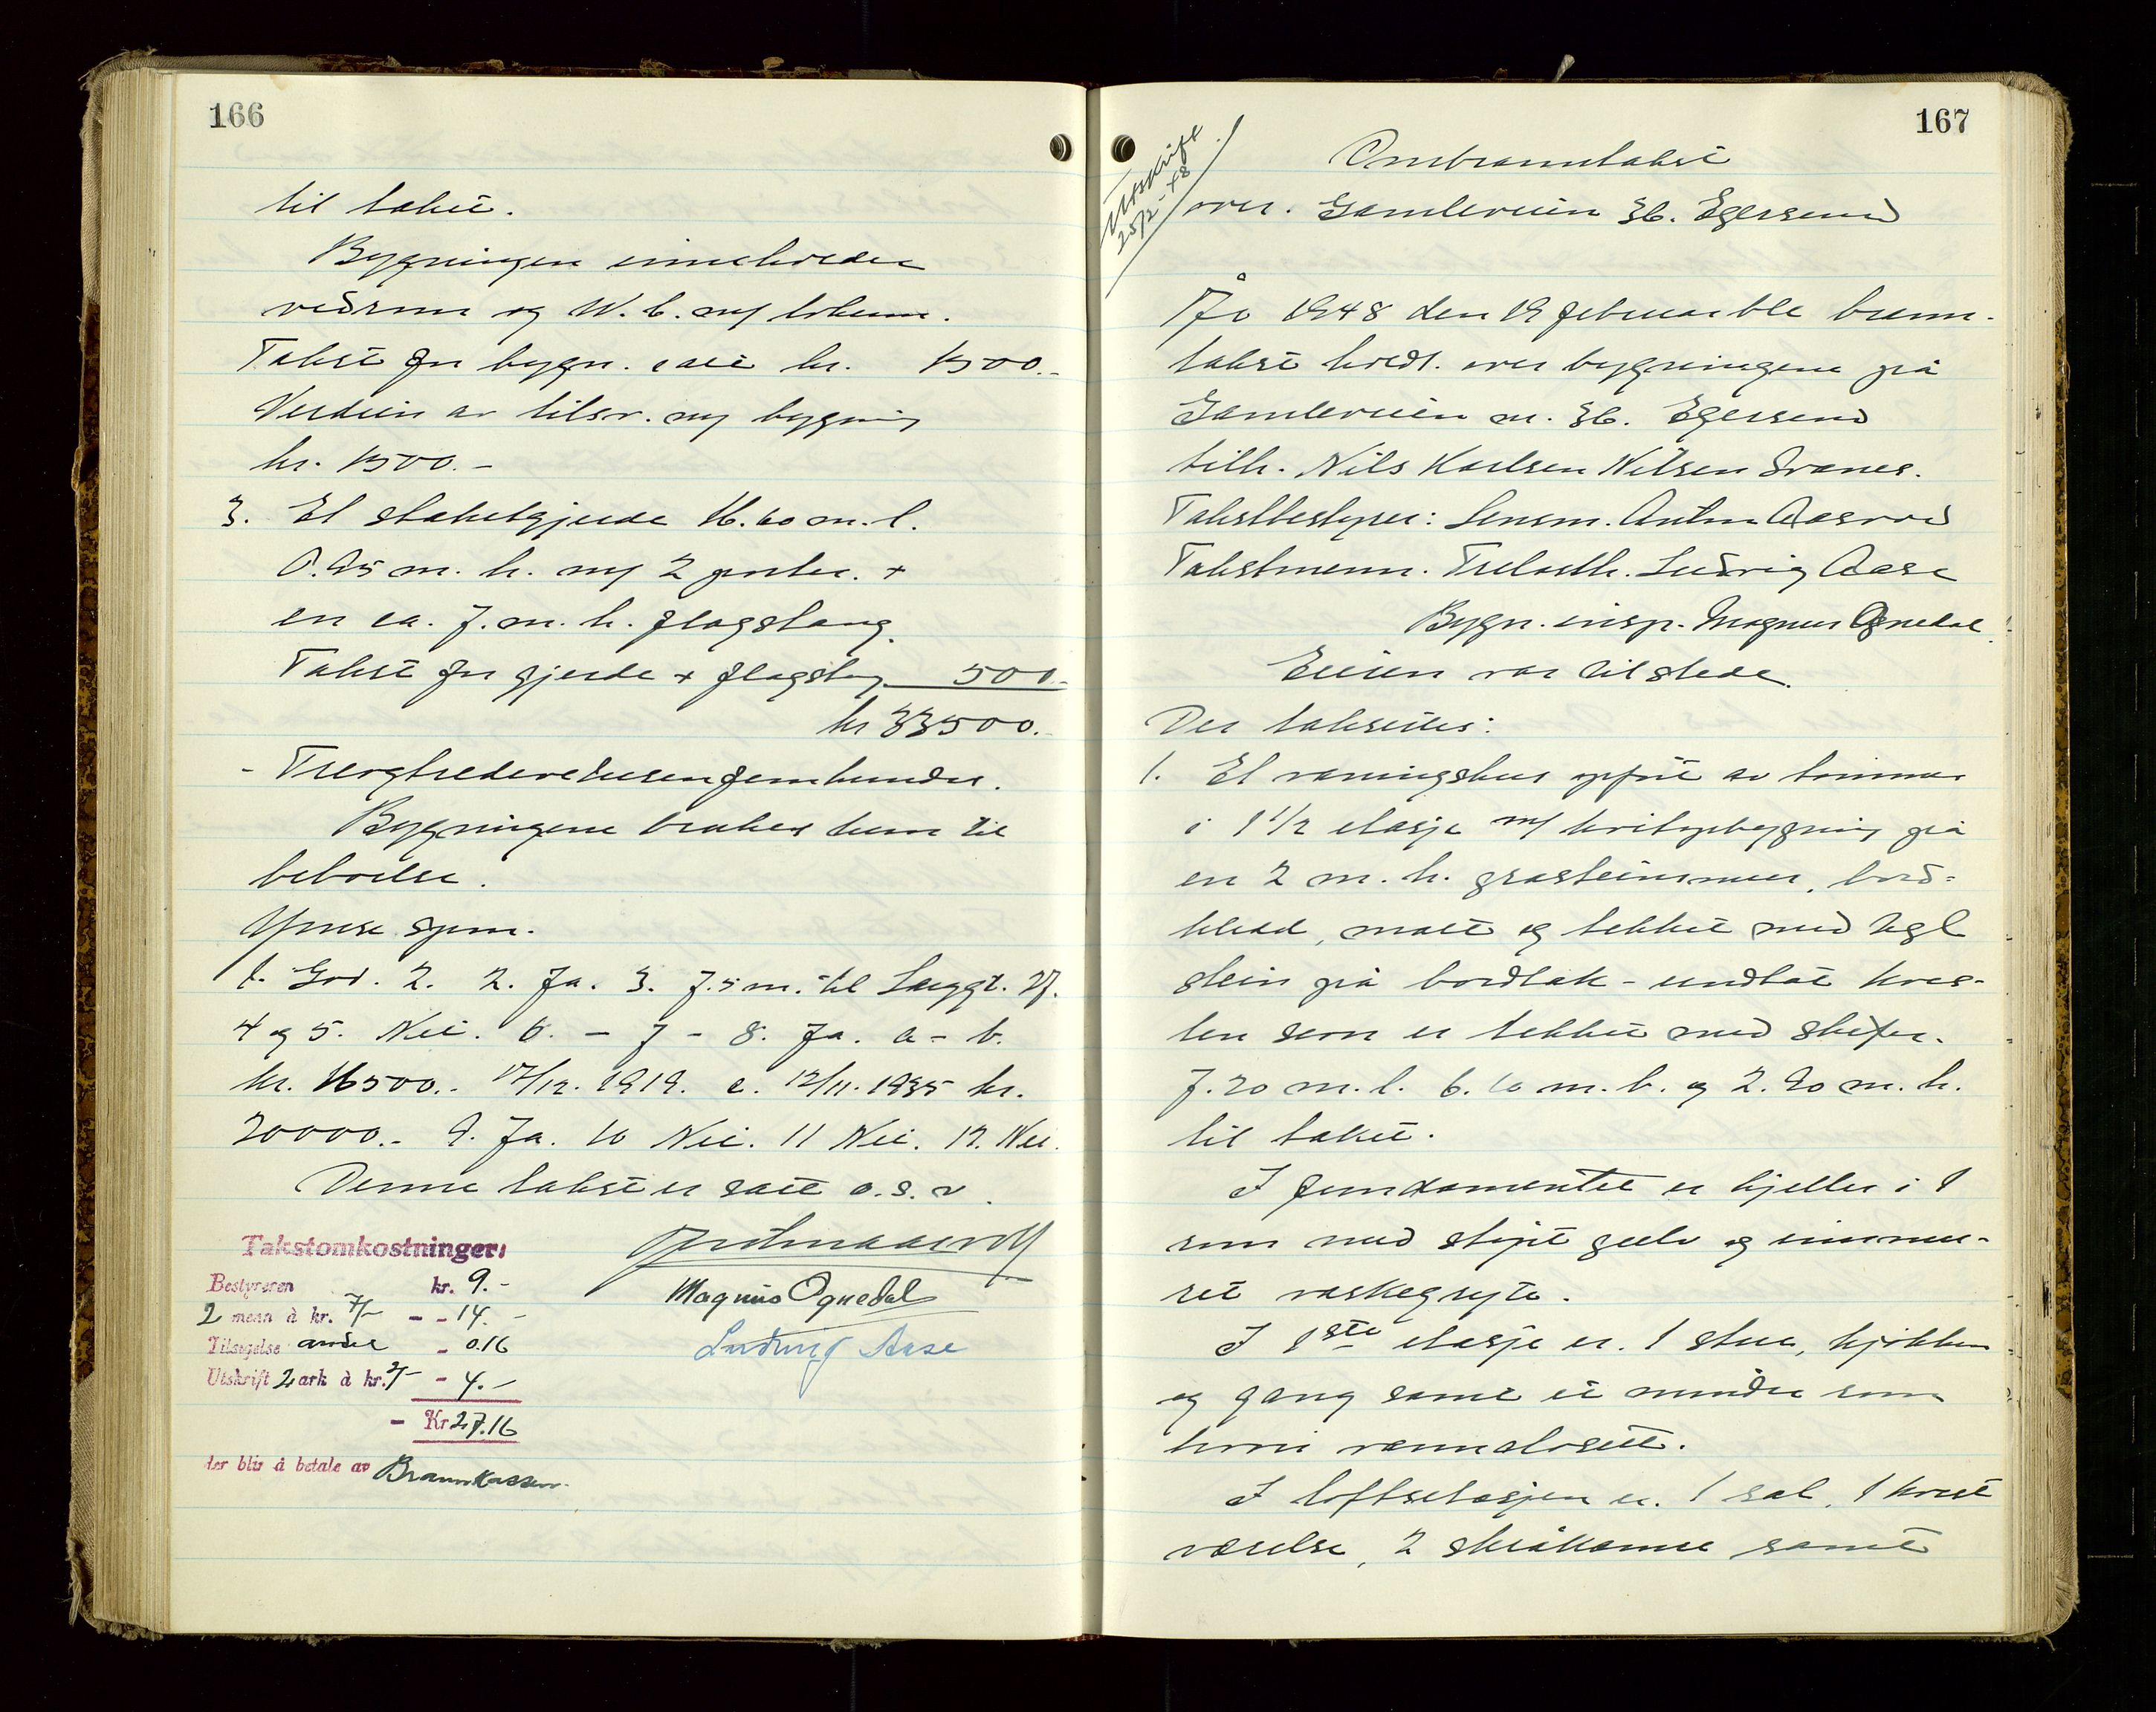 166
til taket.
Bygningen inneholder
vedrum og W.c. m/ lokum.
Takst for bygn. i alt kr. 1500.-
Verdien av tilsv. ny bygning
kr. 1500.-
3. Et staketgjerde 16.60 m. l.
0.95 m. h. m/ 2 porter. +
en ca. 7. m. h. flagstang.
Takst for gjerde + flagstang 500.-
kr 33500.-
- Trergtredevetusenfemhundre.
Bygningene brukes kun til
beboelse.
Ymse spm.
1. God. 2. 2. Ja. 3. 7.5 m. til Langgt. 27.
4 og 5. Nei. 6. - 7 - 8. Ja. a - b.
kr. 16500.- 17/12. 1919. c. 12/11. 1935 kr.
20000.- 9. Ja. 10 Nei. 11 Nei. 12. Nei.
Denne takst er satt o.s.v.
Takstomkostninger:
Bestyreren kr. 9.-
2 menn à kr. 7/- - - 14.-
Tilsigelse andel - 0.16
Utskrift 2 ark à kr. 2/- - 4.-
- Kr 27.16
der blir å betale av Brannkassen.
Magnus Ognedal
Ludvig Aase
167
Utskrift
25/2-48
Ombranntakst
over. Gamleveien 36. Egersund
År 1948 den 19 februar ble brann-
takst holdt. over bygningene på
Gamleveien nr. 36. Egersund
tilh. Nils Karlsen Nilsen Svanes.
Takstbestyrer: Lensm. Anton Aasrod
Takstmenn. Trelasth. Ludvig Aase
Bygn. insp. Magnus Ognedal.
Eieren var tilstede.
Der takseres:
1. Et våningshus oppført av tømmer
i 1 1/2 etasje m/ kvistpåbygning på
en 2 m. h. gråsteinsmur, bord-
kledd, malt og tekket med tegl
stein på bordtak - undtat kvis-
ten som er tekket med skifer.
7.20 m. l. 6.10 m. b. og 2.90 m. h.
til taket.
I fundamentet er kjeller i 1
rum med støpt gulv og innmu-
ret vaskegryte.
I 1ste etasje er. 1 stue, kjøkken
og gang samt et mindre rom
hvori vannklosett.
I loftsetasjen er. 1 sal, 1 kvist
værelse, 2 skråkammer samt